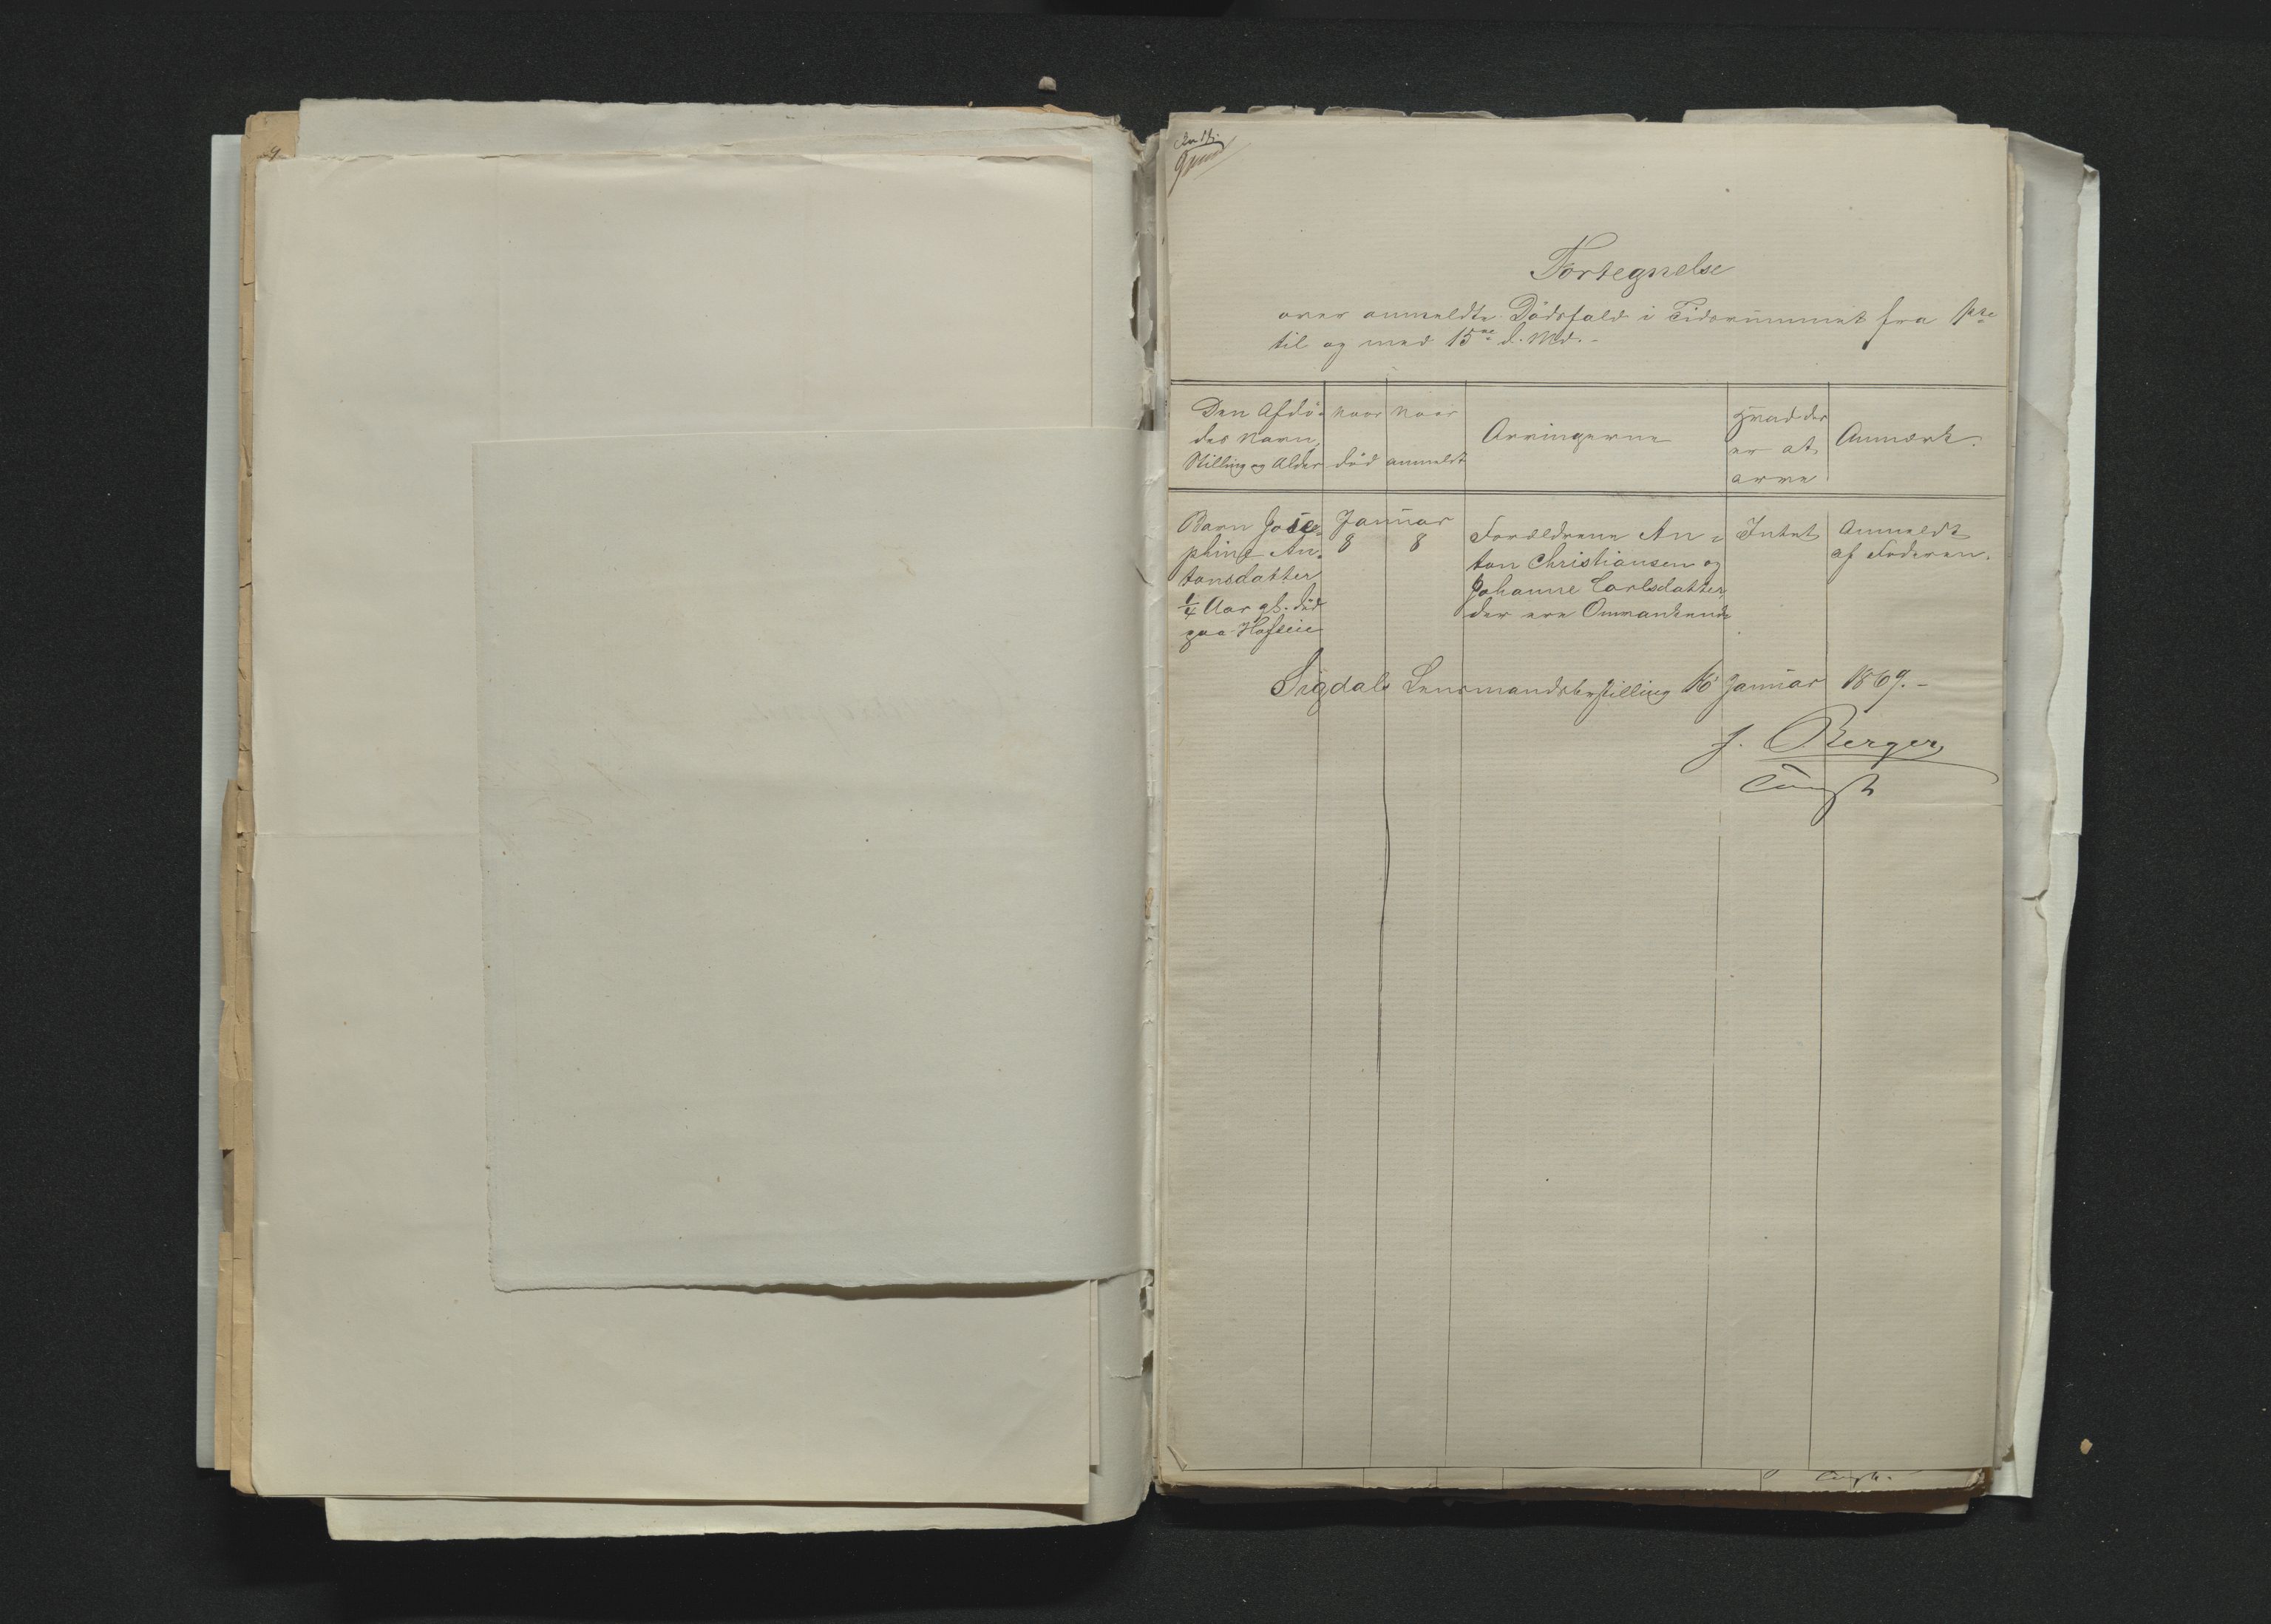 Fortegnelse
over anmeldte Dödsfald i Tidsrummet fra 1ste
til og med 15de d. Md.-
Den Afdö-
des Navn,
Stilling og Alder
Naar
död
Naar
anmeldt
Arvingerne
Hvad der
er at
arve
Anmærk.
Barn Jose-
phine An-
tonsdatter
1/4 Aar gl. död
paa Hofseie
Januar
8
8
Forældrene An-
ton Christiansen og
Johanne Carlsdatter
der ere Omvankende
Intet
Anmeldt
af Faderen.
Sigdals Lensmandsbestilling 16 Januar 1869.-
J. Berger
Const
Const.